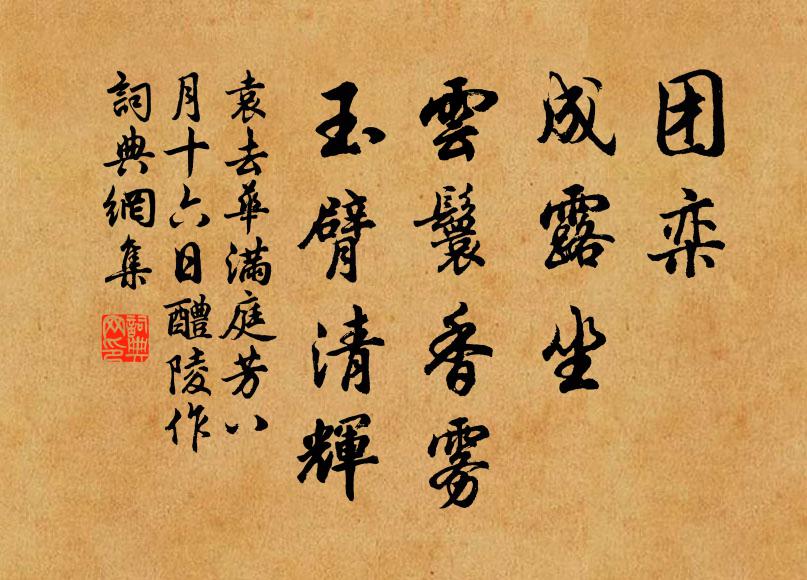 团栾
成露坐
雲鬟香雾
玉臂清輝
袁去華滿庭芳八
月十六日醴陵作
詞典網集
詞典
网印